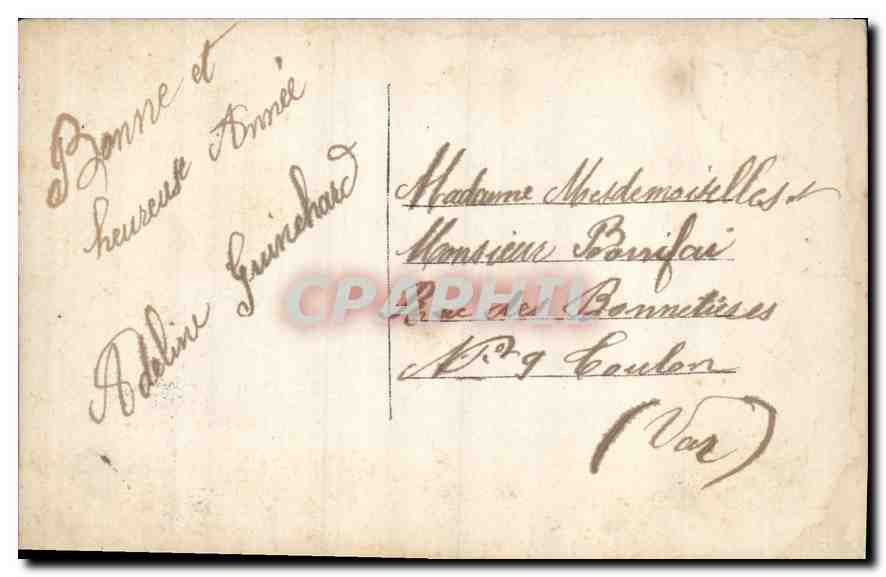 Bonne et
heureuse Année
Adeline Guinchard
Madame Mesdemoiselles et
Monsieur Bonifai
Rue des Bonnetières
9 Toulon
(Var)
CPAPHIL